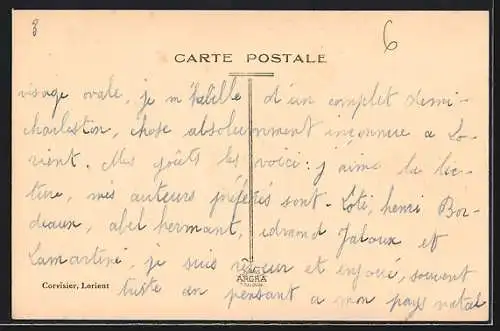 8
6
CARTE POSTALE
visage ovale, je m'habille d'un complet demi-
charleston, chose absolumment inconnue a Lo-
rient. Mes goûts les voici: j'aime la lec-
ture, mes auteurs préférés sont - Loti, henri Bor-
deaux, abel hermant, edmond Jaloux et
Lamartine, je suis rêveur et enjoué, souvent
triste en pensant a mon pays natal
ARGRA
Corvisier, Lorient